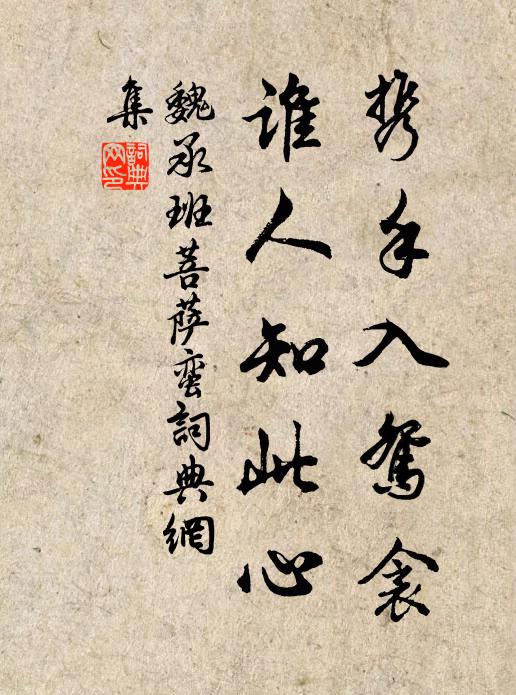 携手入鸳衾
谁人知此心
魏承班菩萨蛮詞典網
集
詞典網印